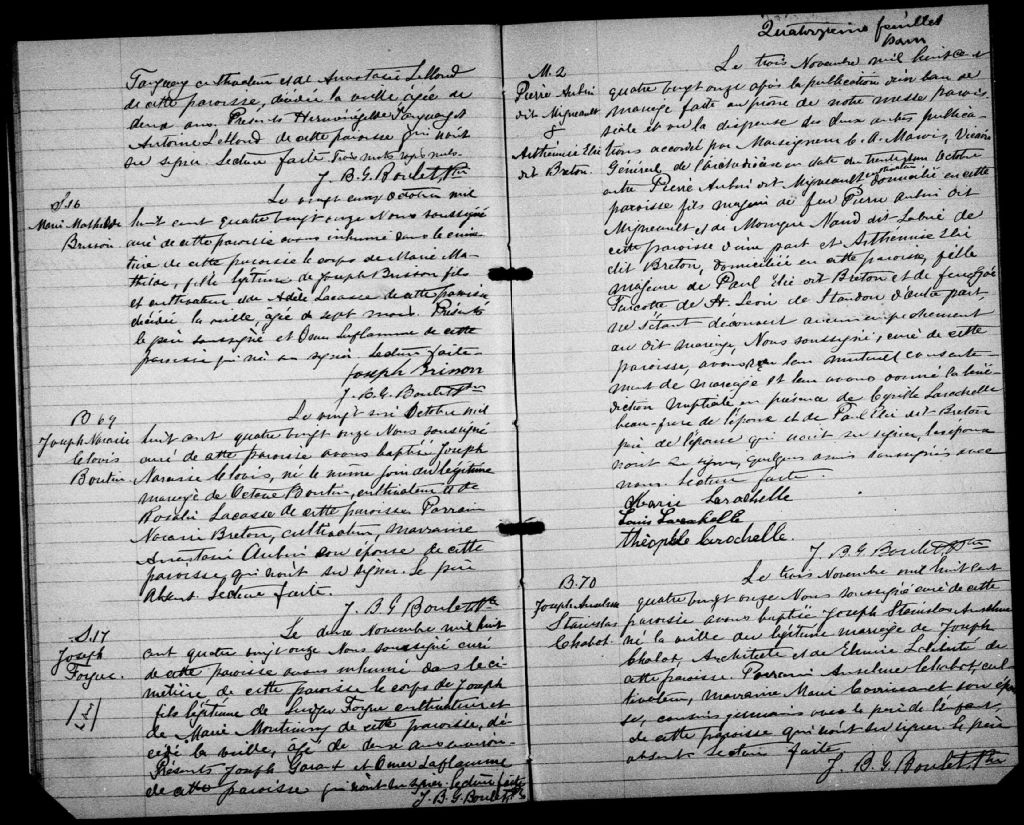 Tanguay cultivateur et de Anastasie Leblond
de cette paroisse, décédée la veille âgée de
deux ans. Présents Herménégilde Tanguay et
Antoine Leblond de cette paroisse qui n'ont
su signer. Lecture faite. Trois mots rayés nuls.
J. B. G. Boulet Ptre
S. 16
Marie Mathilde
Brisson
Le vingt cinq Octobre mil
huit cent quatre vingt onze Nous soussigné
curé de cette paroisse avons inhumé dans le cime
tière de cette paroisse le corps de Marie Ma-
thilde, fille légitime de Joseph Brisson fils
et cultivateur et de Adèle Lacasse de cette paroisse
décédée la veille, âgée de sept mois. Présents
le père soussigné et Omer Laflamme de cette
paroisse qui n'a su signer. Lecture faite.
Joseph Brisson
J. B. G. Boulet Ptre
B 69
Joseph Narcisse
Clovis
Boutin
Le vingt six Octobre mil
huit cent quatre vingt onze Nous soussigné
curé de cette paroisse avons baptisé Joseph
Narcisse Clovis, né le même jour du légitime
mariage de Octave Boutin, cultivateur et de
Rosalie Lacasse de cette paroisse. Parrain
Narcisse Breton, cultivateur, marraine
Anastasie Aubin son épouse de cette
paroisse, qui n'ont su signer. Le père
absent. Lecture faite.
J. B. G Boulet Ptre
S. 17
Joseph
Forgue.
Le deux Novembre mil huit
cent quatre vingt onze Nous soussigné curé
de cette paroisse avons inhumé dans le ci-
metière de cette paroisse le corps de Joseph
fils légitime de Forgue cultivateur et
de Marie de cette paroisse, dé-
cédé la veille, âgé de deux ans environ.
Présents Joseph et Omer Laflamme
de cette paroisse qui n'ont su signer. Lecture faite
J. B. G. Boulet Ptre
Quatorzième feuillet
M. 2
Pierre Aubin
dit Migneault
&
Arthémise Elie
dit Breton.
Le trois Novembre mil huit cent
quatre vingt onze après la publication d'un ban de
mariage faite au prône de notre messe parois-
siale et vu la dispense des deux autres publica-
tions accordée par Monseigneur C. A. Marois, Vicaire
Général de l'archidiocèse en date du trente un Octobre
entre Pierre Aubin dit Migneault domicilié en cette
paroisse fils majeur de feu Pierre Aubin dit
Migneault et de Monique Naud dit Labrie de
cette paroisse d'une part et Arthémise Elie
dit Breton, domiciliée en cette paroisse, fille
majeure de Paul Elie dit Breton et de feue
Turcotte, de St. Léon de Standon d'autre part,
ne s'étant découvert aucun empêchement
au dit mariage, Nous soussigné, curé de cette
paroisse, avons reçu leur mutuel consente-
ment de mariage et leur avons donné la béné-
diction nuptiale en présence de Cyrille Larochelle
beau-frère de l'époux et de Paul Elie dit Breton
père de l'épouse qui n'ont su signer, les époux
n'ont su signer, quelques amis soussignés avec
nous. Lecture faite.
Marie Larochelle
Louis Larochelle
Théophile Larochelle.
J. B G Boulet Ptre
B. 70
Joseph Anselme
Stanislas
Chabot.
Le trois Novembre mil huit cent
quatre vingt onze Nous soussigné curé de cette
paroisse avons baptisé Joseph Stanislas Anselme
né la veille du légitime mariage de Joseph
Chabot, Architecte et de Elmire Laliberté de
cette paroisse. Parrain Anselme Chabot, cul-
tivateur, marraine Marie Corriveau et son épou
se, cousins germains avec le père de l'enfant,
de cette paroisse qui n'ont su signer. Le père
absent. Lecture faite.
J. B. G. Boulet Ptre